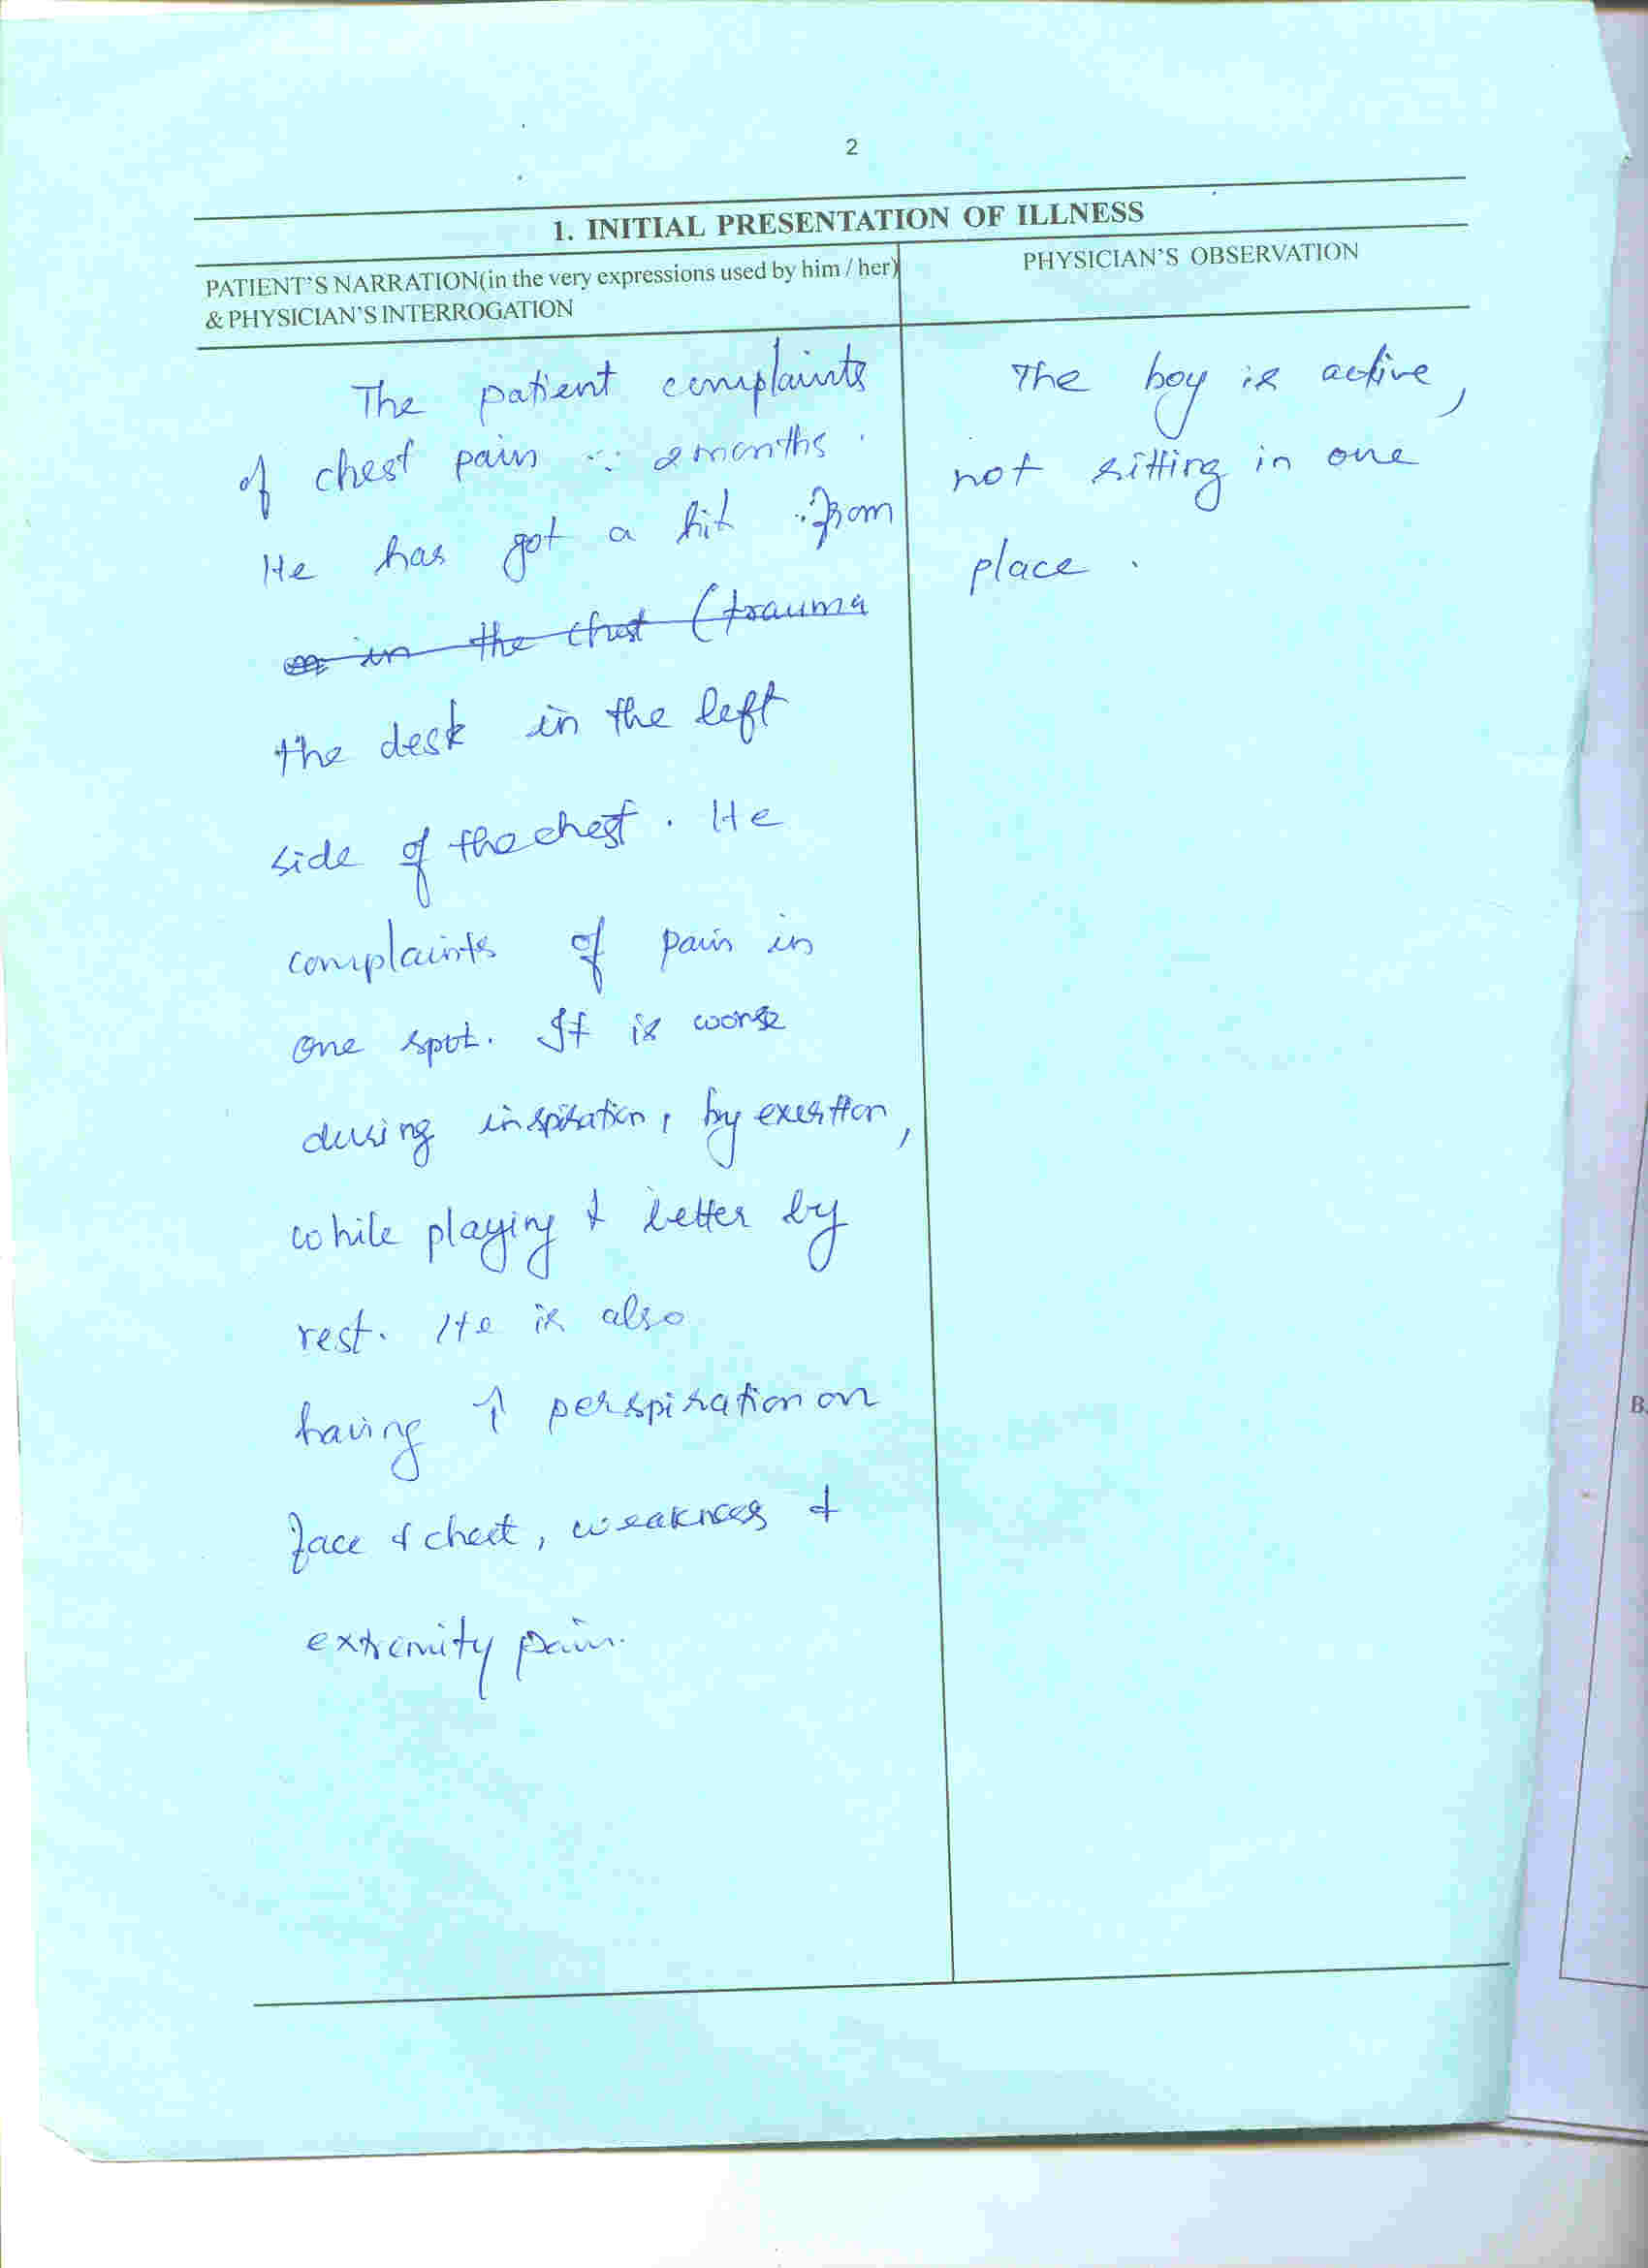 2
1. INITIAL PRESENTATION OF ILLNESS
PATIENT'S NARRATION(in the very expressions used by him / her)
& PHYSICIAN'S INTERROGATION
PHYSICIAN'S OBSERVATION
The patient complaints
of chest pain 2 months.
He has got a hit from
in the chest (trauma
the desk in the left
side of the chest. He
complaints of pain in
one spot. It is worse
during inspiration, by exertion,
while playing & better by
rest. He is also
having ↑ perspiration on
face & chest, weakness &
extremity pain.
The boy is active,
not sitting in one
place.
B.